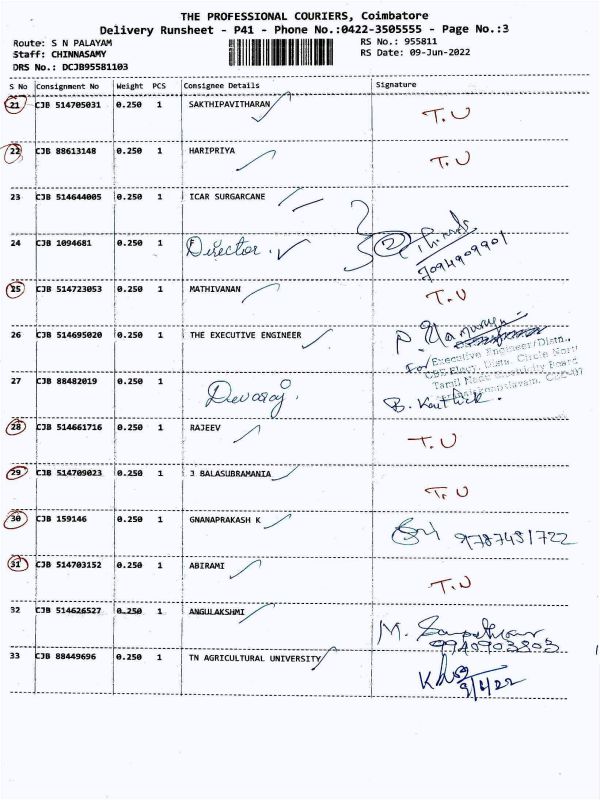 THE PROFESSIONAL COURIERS, Coimbatore
Delivery Runsheet - P41 - Phone No.:0422-3505555 - Page No.:3
Route: S N PALAYAM
Staff: CHINNASAMY
DRS No.: DCJB95581103
RS No.: 955811
RS Date: 09-Jun-2022
S No Consignment No Weight PCS Consignee Details Signature
21 CJB 514705031 0.250 1 SAKTHIPAVITHARAN T.U
22 CJB 88613148 0.250 1 HARIPRIYA T.U
23 CJB 514644005 0.250 1 ICAR SURGARCANE
24 CJB 1094681 0.250 1 Director. 2
7094909901
25 CJB 514723053 0.250 1 MATHIVANAN T.U
26 CJB 514695020 0.250 1 THE EXECUTIVE ENGINEER P.
For Executive Engineer/Distn.,
CBE Elecy. Distn. Circle North
Tamil Nadu Electricity Board
27 CJB 88482019 0.250 1 Devaraj. B. Karthick.
28 CJB 514661716 0.250 1 RAJEEV T.U
29 CJB 514709023 0.250 1 J BALASUBRAMANIA T.U
30 CJB 159146 0.250 1 GNANAPRAKASH K 9787431722
31 CJB 514703152 0.250 1 ABIRAMI T.U
32 CJB 514626527 0.250 1 ANGULAKSHMI M.
9940903803
33 CJB 88449696 0.250 1 TN AGRICULTURAL UNIVERSITY
9/6/22